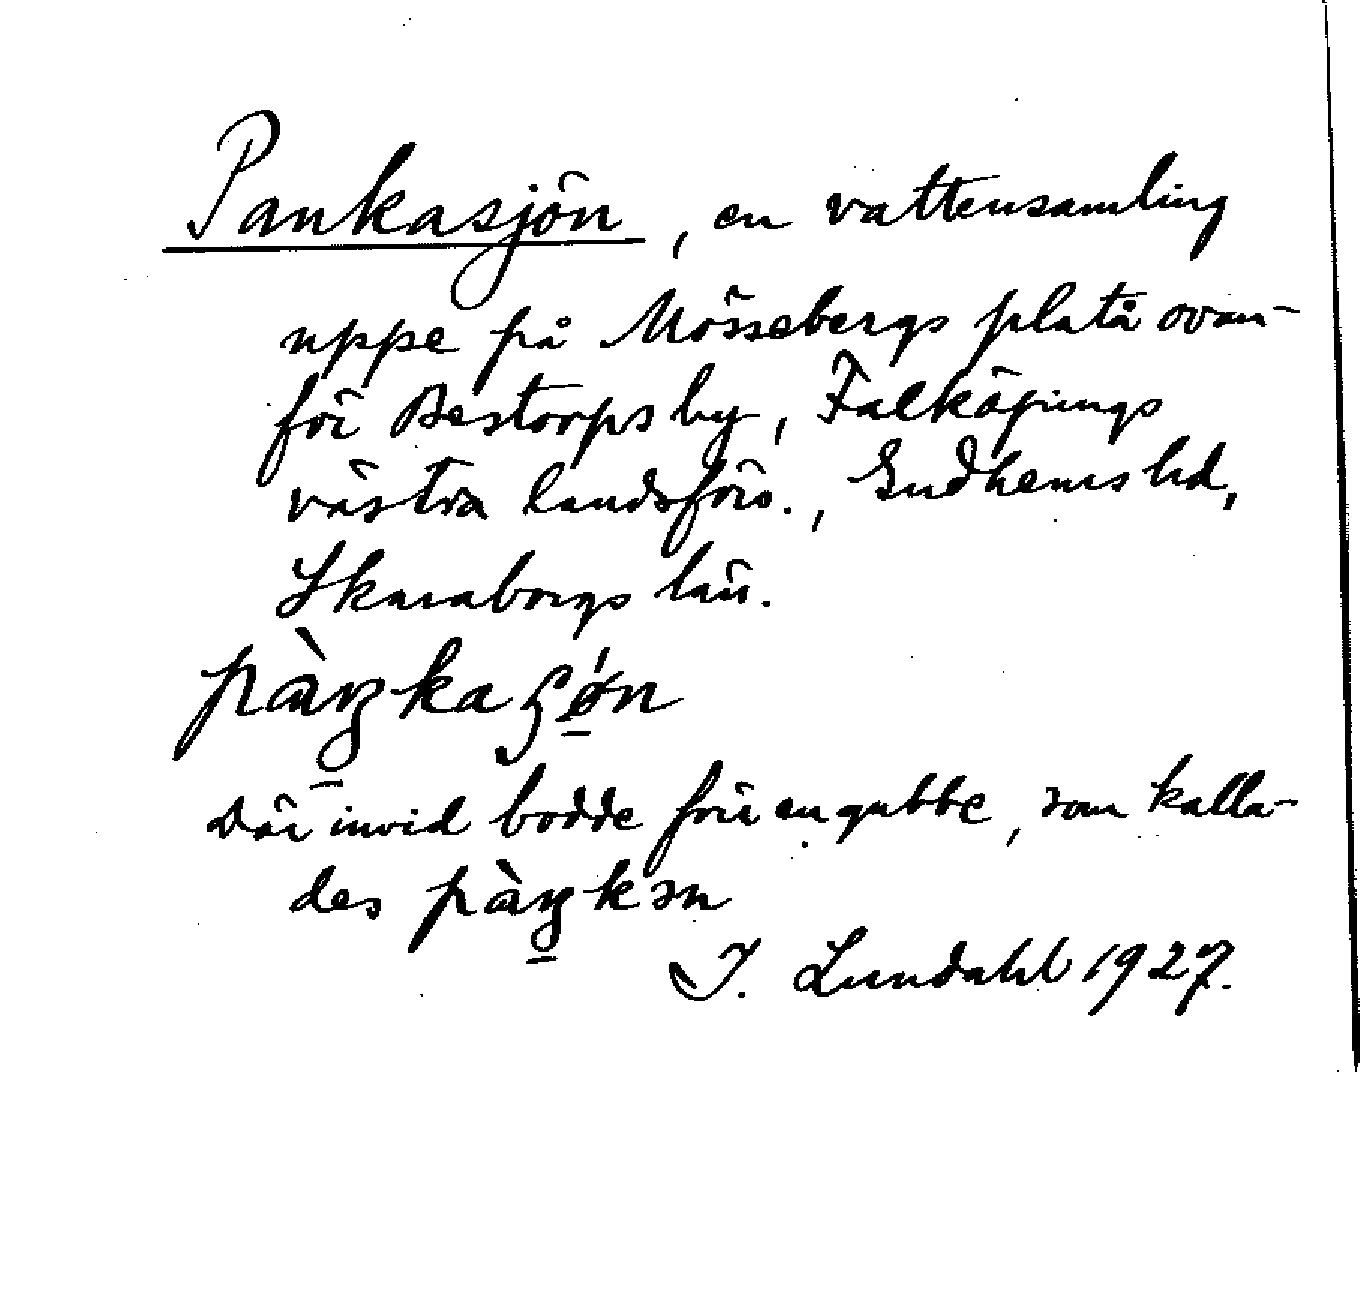 Pankasjön, en vattensamling
uppe på Mössebergs platå ovan-
för Bestorps by, Falköpings
västra landsförs., Gudhems hd,
Skaraborgs län.
pàŋ̱ka ʂǿ̱n
Där invid bodde förr en gubbe, som kalla-
des pàŋ̱kən
I. Lundahl 1927.